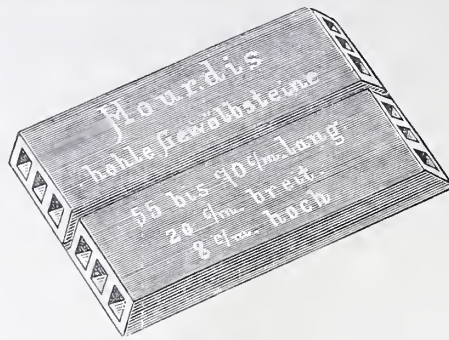 Hourdis
hohle Gewölbsteine
55 bis 90 c/m. lang.
20 c/m. breit.
8 c/m. hoch